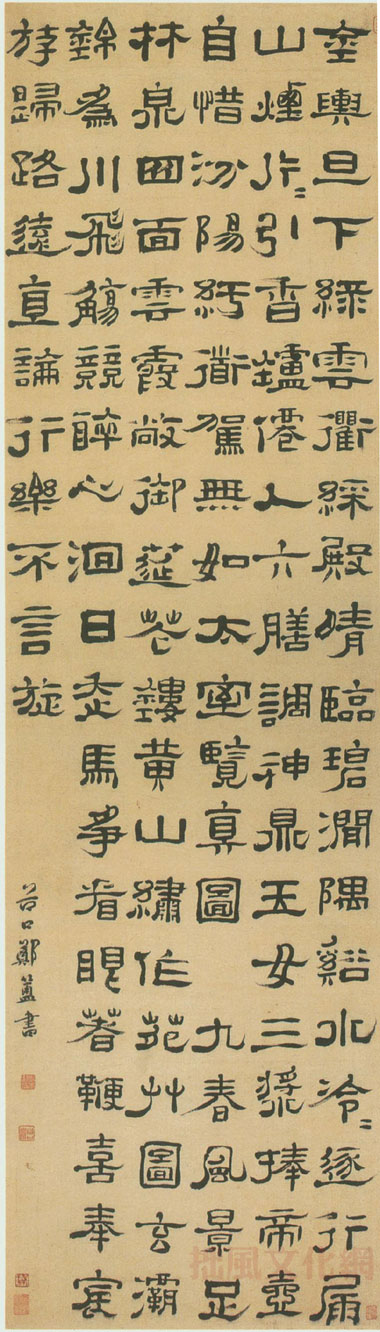 金輿旦下綠雲衢綵殿晴臨碧澗隅谿水泠〻逐行屚
山煙片〻引香爐僊人六膳調神鼎玉女三漿捧帝壺
自惜汾陽紆衜駕無如太室覽真圖 九春風景足
林泉四面雲霞敞御筵花鏤黃山繡作苑艸圖玄灞
錦為川飛觴競醉心迴日走馬爭看眼著鞭喜奉宸
遊歸路遠直論行樂不言旋
谷口鄭簠書
拙風文化網